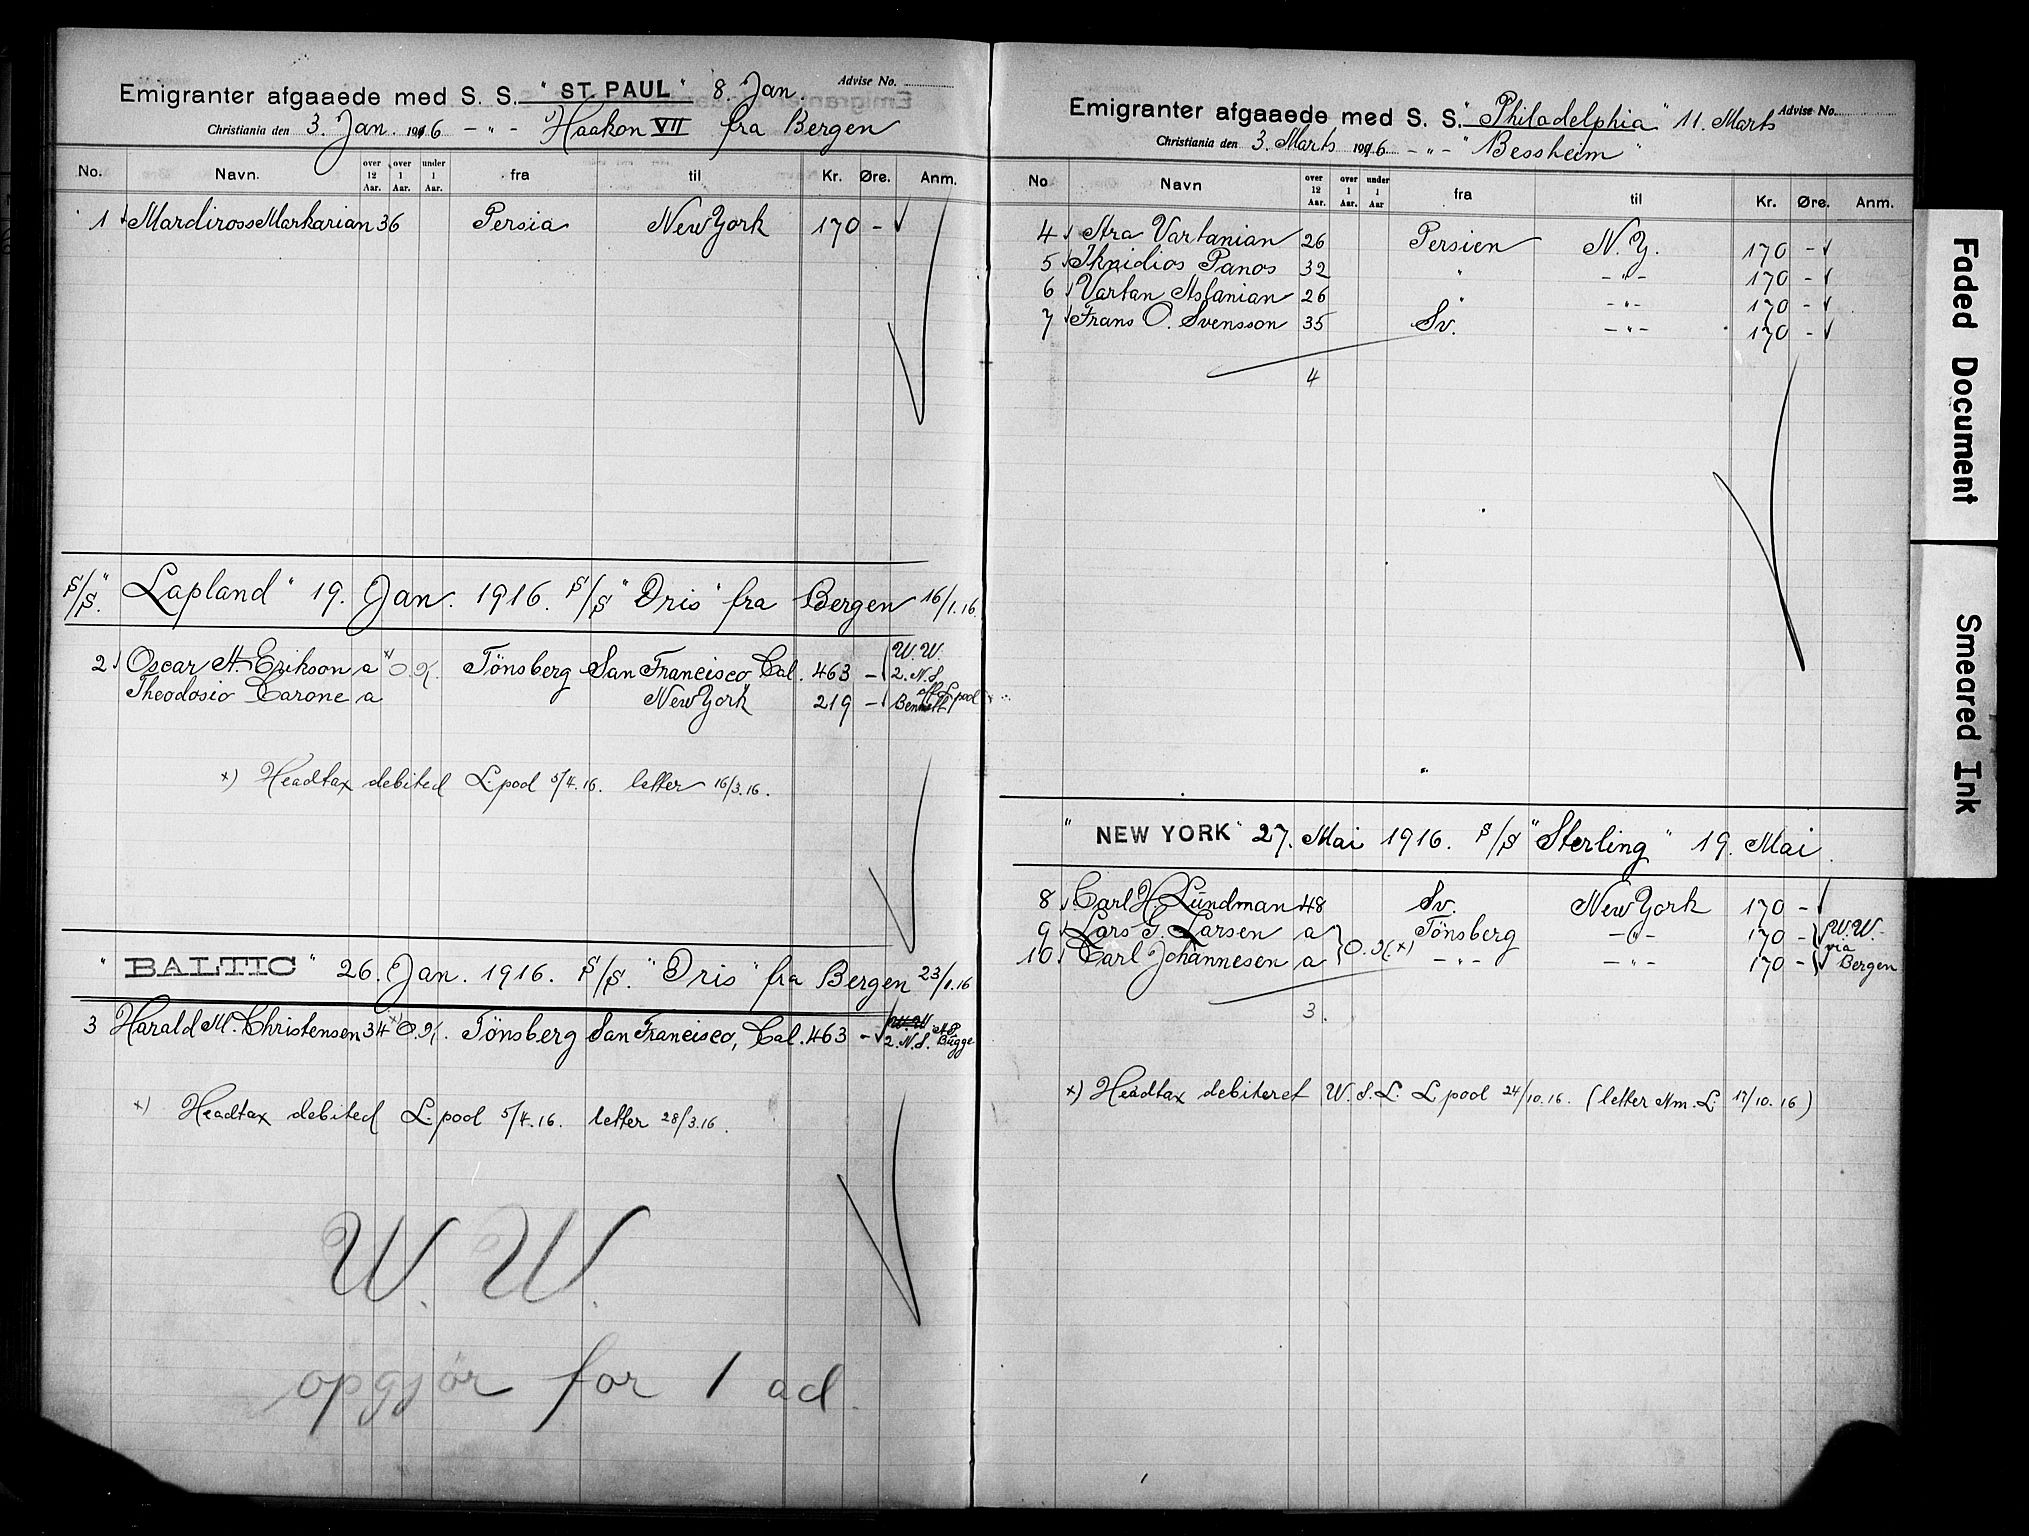 Emigranter afgaaede med S. S. "ST. PAUL" 8 Jan. Advise No.
Christiania den 3. Jan. 1916 - " - Haakon VII fra Bergen
No. Navn. over 12 Aar. over 1 Aar. under 1 Aar. fra til Kr. Øre. Anm.
1 Mardiross Markarian 36 Persia New York 170 -
S/S. "Lapland" 19. Jan. 1916. S/S "Iris" fra Bergen 16/1.16
2 Oscar A. Erikson a x) O.K. Tönsberg San Francisco Cal. 463 - W.W. 2. N.S.
Theodosio Carone a New York 219 - L.pool
x) Headtax debited L.pool 5/4.16. letter 16/3.16.
"BALTIC" 26. Jan. 1916. S/S. "Iris" fra Bergen 23/1.16
3 Harald M. Christensen 34 x) O.K. Tönsberg San Francisco, Cal. 463 - W.W. 2. N.S. Bugge
x) Headtax debited L.pool 5/4.16. letter 28/3.16.
W. W.
opgjör for 1 ad.
Emigranter afgaaede med S. S. "Philadelphia" 11. Marts Advise No.
Christiania den 3. Marts 1916 - " - "Bessheim"
No Navn over 12 Aar. over 1 Aar. under 1 Aar fra til Kr. Øre. Anm.
4 Ara Vartanian 26 Persien N.Y. 170 -
5 Panos 32 " - " - 170 -
6 Vartan Aslanian 26 " - " - 170 -
7 Frans O. Svensson 35 Sv. - " - 170 -
4
"NEW YORK" 27. Mai 1916. S/S "Sterling" 19. Mai.
8 Carl H. Lundman 48 Sv. New York 170 -
9 Lars G. Larsen a Tönsberg - " - 170 - W.W.
10. Carl Johannesen a O.K. x) - " - - " - 170 - via Bergen
3.
x) Headtax debiteret W.S.L. L.pool 24/10.16. (letter Am. L. 17/10.16)
Faded Document
Smeared Ink